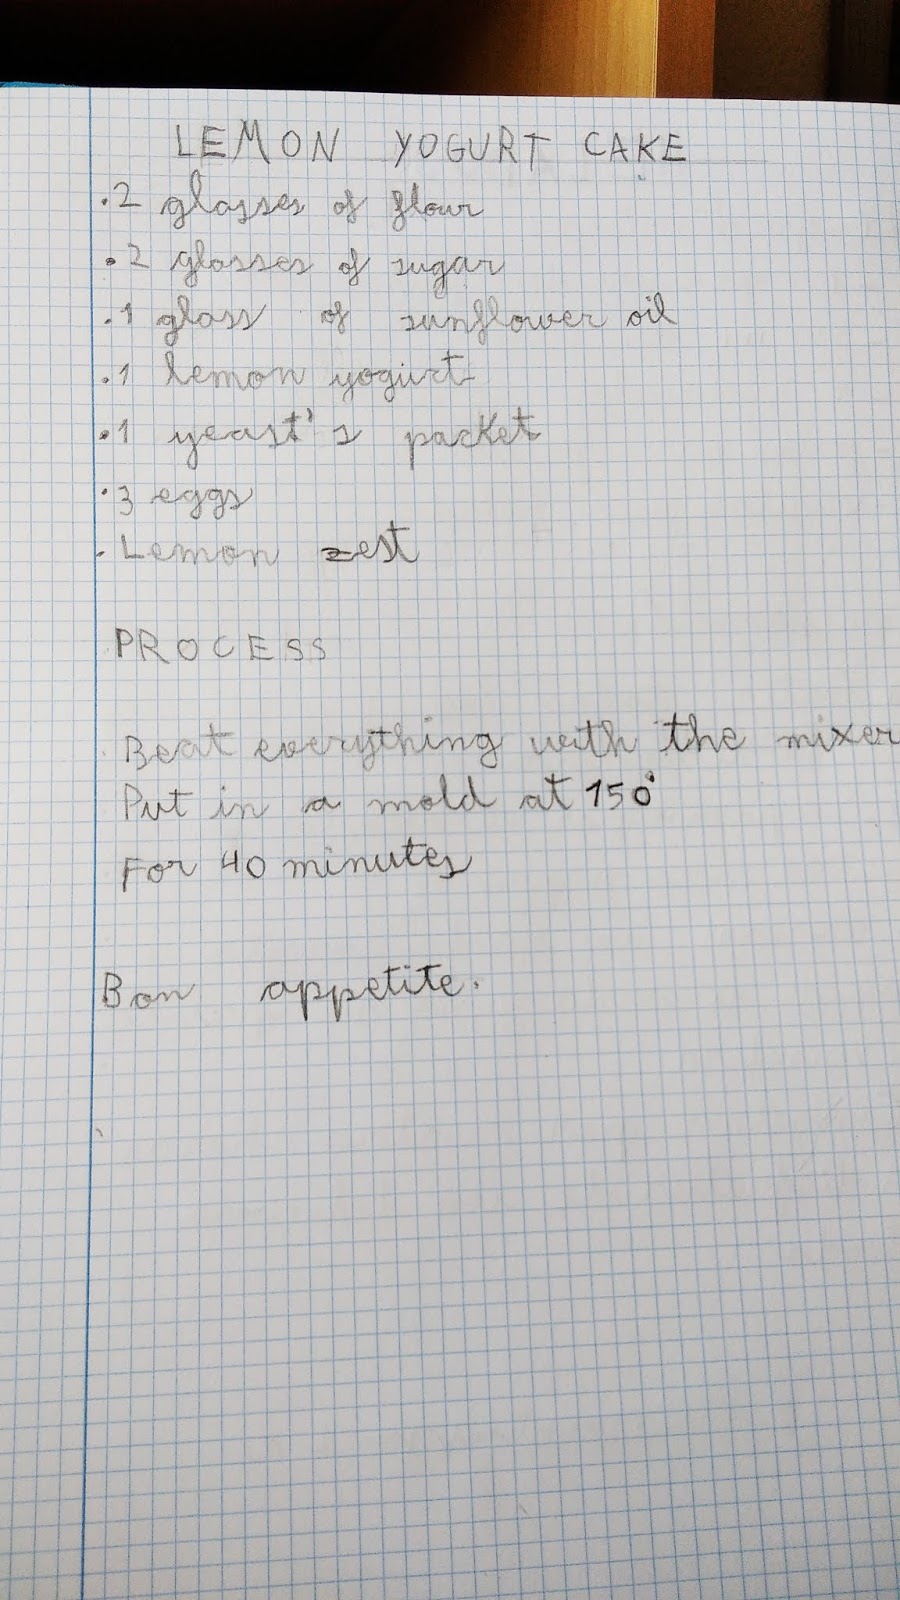 LEMON YOGURT CAKE
.2 glasses of flour
.2 glosses of sugar
.1 glass of sunflower oil
.1 lemon yogurt
.1 yeast's packet
.3 eggs
.Lemon zest
PROCESS
Beat everything with the mixer
Put in a mold at 150°
For 40 minutes
Bon appetite.